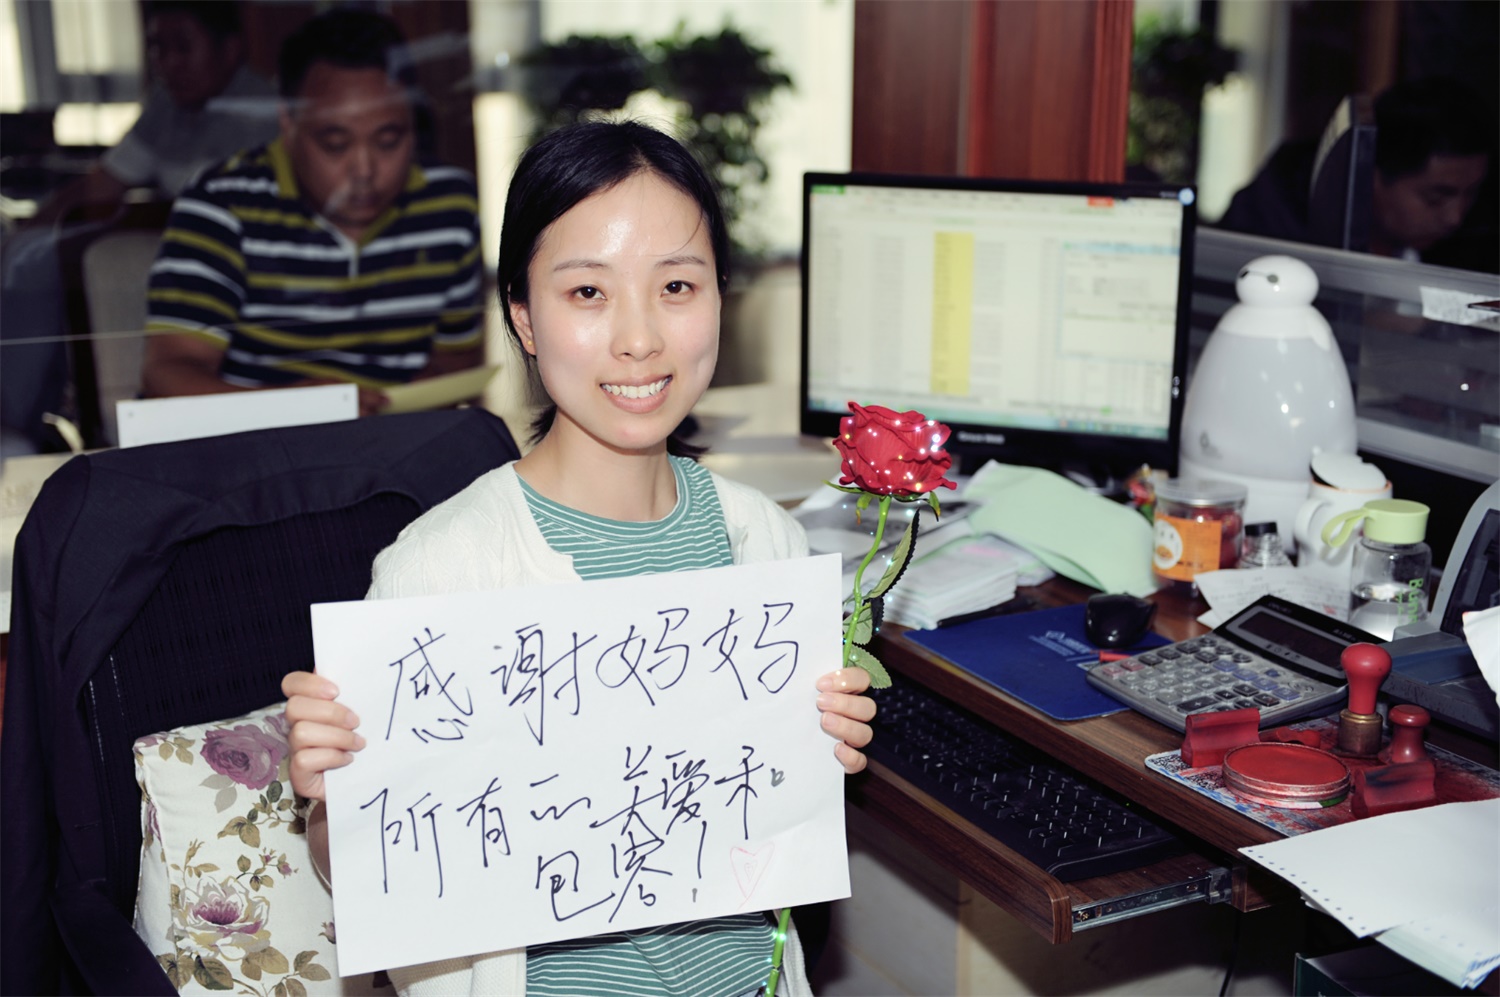 感谢妈妈
所有的关爱和
包容!